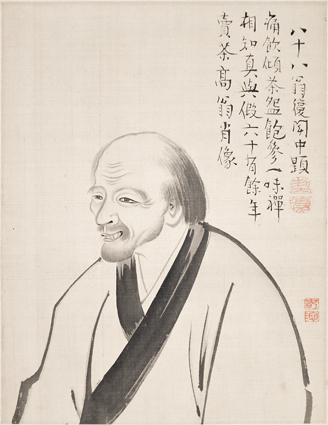 賣茶高翁肖像
相知真與假六十有餘年
痛飲傾茶盌飽參一味禪
八十八翁復中題